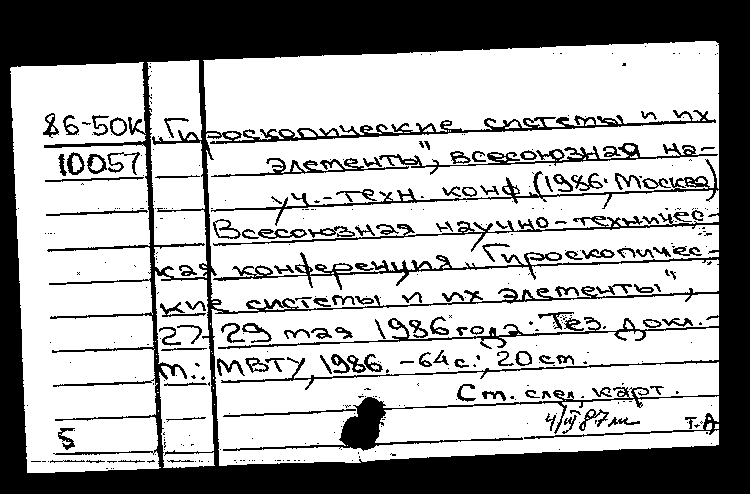 86-50К „Гироскопические системы и их
10057 элементы", всесоюзная на-
уч.-техн. конф. (1986; Москва)
Всесоюзная научно-техничес-
кая конференция „Гироскопичес-
кие системы и их элементы",
27-29 мая 1986 года: Тез. докл.-
М.: МВТУ, 1986. -64 с.; 20 см.
См. след. карт.
5 Т.А